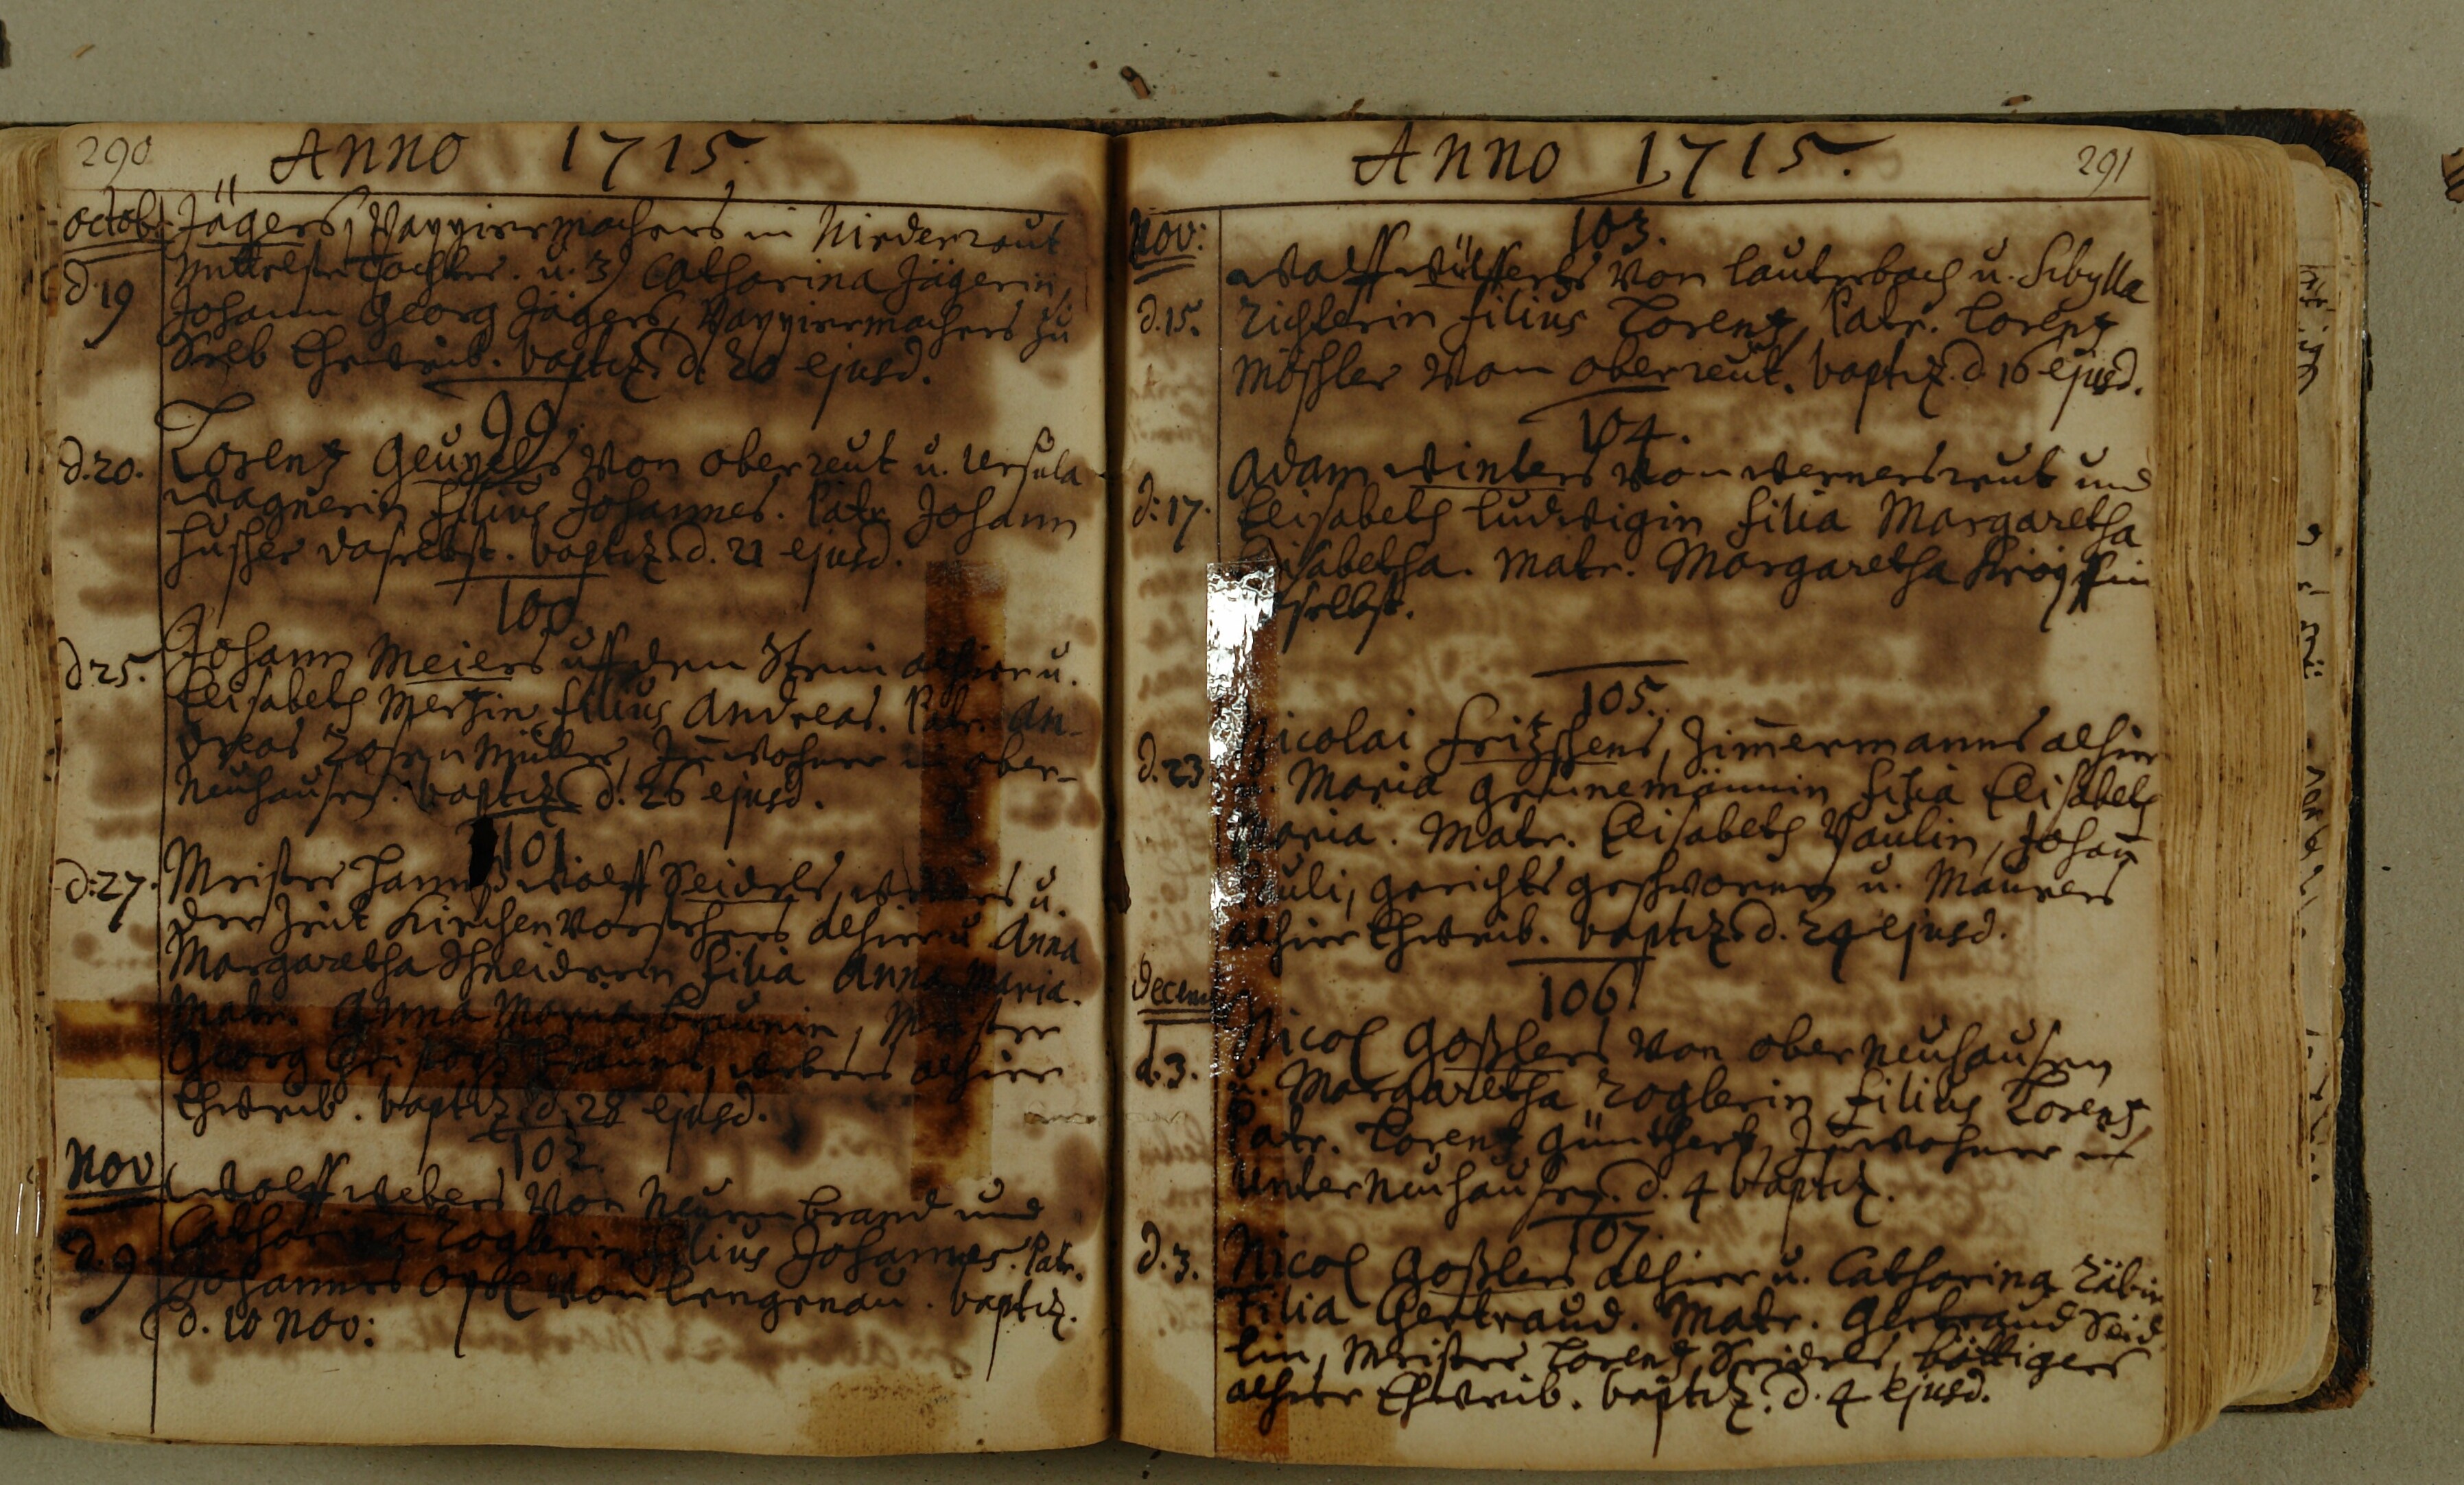 290
Anno 1715.
octob:
Jägers, Pappiermachers in Niederreut
d. 19
mittelste Tochter. u. 3) Catharina Jägerin,
Johann Georg Jägers, Pappiermachers zu
Selb Eheweib. baptiz. d. 20 ejusd.
99.
d. 20.
Lorentz Geupels von oberreut u. Ursula
Wagnerin filius Johannes. Patr. Johann
daselbst. baptiz. d. 21 ejusd.
100
d. 25.
Johann Meiers uff dem Stein alhier u.
Elisabeth filius Andreas. Patr. An-
dreas Inwohner in ober-
neuhausen. baptiz. d. 26 ejusd.
101.
d: 27.
Meister Hannß Wolff Seidels, Webers u.
der Zeit Kirchenvorstehers alhier u Anna
Margaretha Schneiderin filia Anna Maria.
Matr. Anna Maria Braunin, Meister
Georg Braunes, webers alhier
Eheweib. baptiz. d. 28 ejusd.
102.
Nov
Wolff Webers von Neuenbrand und
d. 9
Catharina Zoglerin filius Johannes. Patr.
Johannes Opel von Lengenau. baptiz.
d. 10 Nov:
Anno 1715.
291
Nov:
103.
Wolff von Lauterbach u. Sibylla
d. 15.
Richterin filius Lorentz, Patr. Lorentz
Möschler von oberreut. baptiz. d. 16 ejusd.
104.
Adam Winters von Wernersreut und
d: 17.
Elisabeth Ludwigin filia Margaretha
Elisabetha. Matr. Margaretha
selbst.
105.
Nicolai Fritzschens, Zimmermanns alhier
d. 23
u. Maria Grünemännin filia Elisabeth
Maria. Matr. Elisabeth Paulin, Johann
Pauli, gerichts geschworens u. Maurers
alhier Eheweib. baptiz. d. 24 ejusd.
Decem
106
Nicol Goßlers von oberneuhausen
d. 3.
u. Margaretha Zoglerin filius Lorentz,
Patr. Lorentz Günthert, Inwohner in
Unterneuhausen. d. 4 baptiz.
107.
d. 3.
Nicol Goßlers alhier u. Catharina
filia Gertraud. Matr. Gertraud Seid
lin, Meister Lorentz Seidels, böttigers
alhier Eheweib. baptiz. d. 4 ejusd.